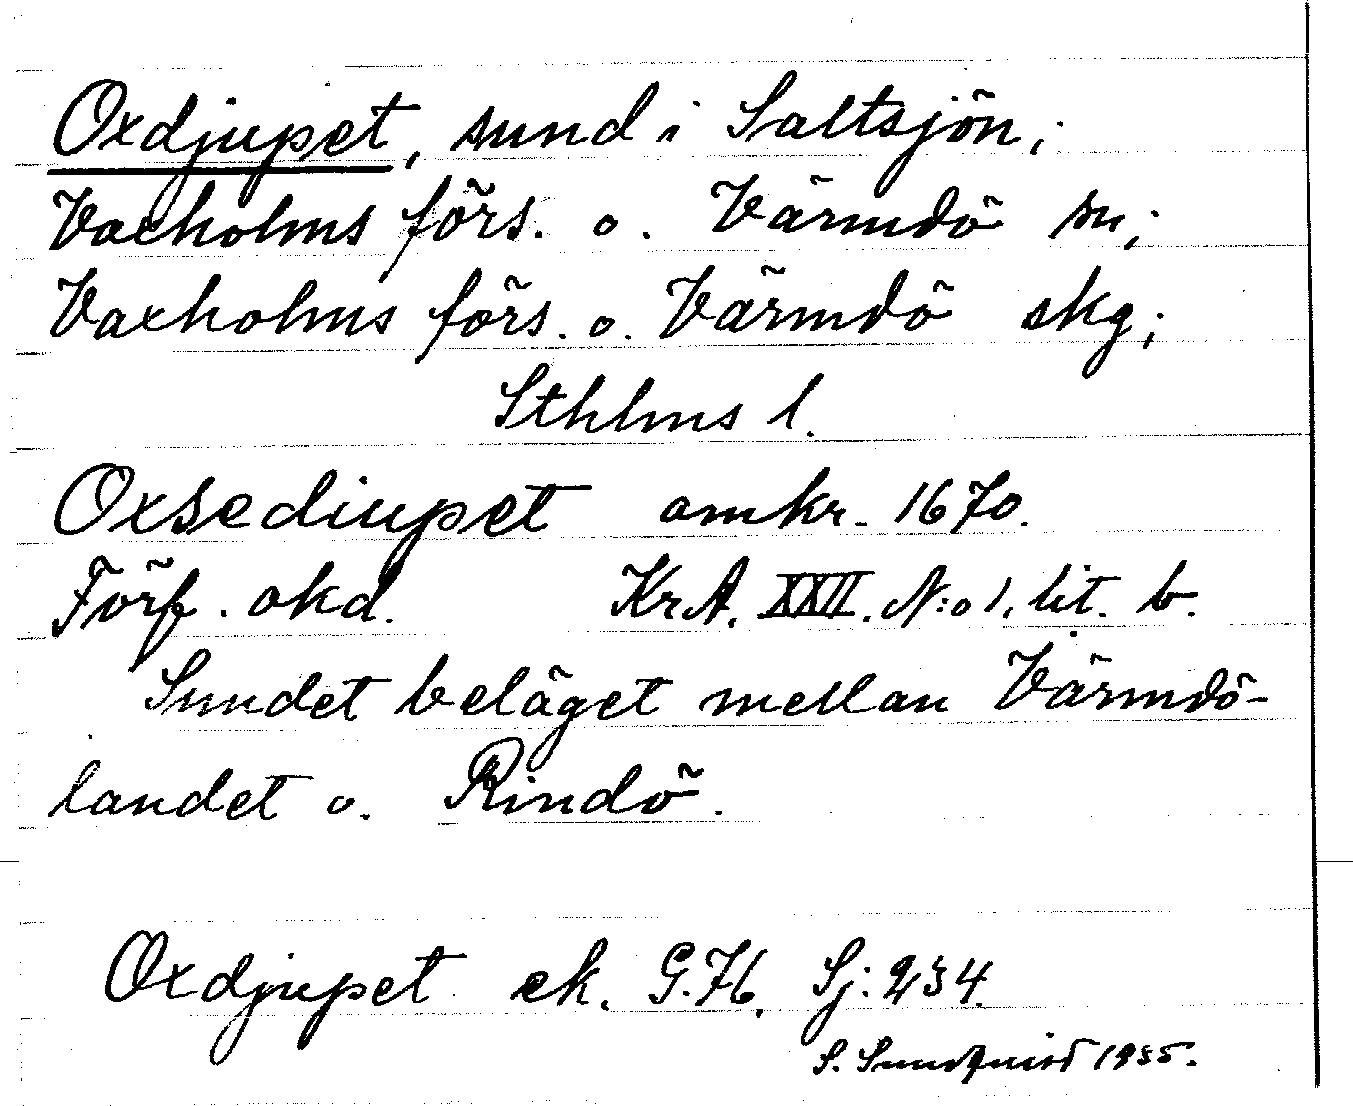 Oxdjupet, sund i Saltsjön;
Vaxholms förs. o. Värmdö sn;
Vaxholms förs. o. Värmdö skg;
Sthlms l.
Oxsediupet omkr. 1670.
Förf. okd. KrA. XXII. N:o 1, lit. b.
Sundet beläget mellan Värmdö-
landet o. Rindö.
Oxdjupet ek. G.H. Sj: 234
S. Sundquist 1935.